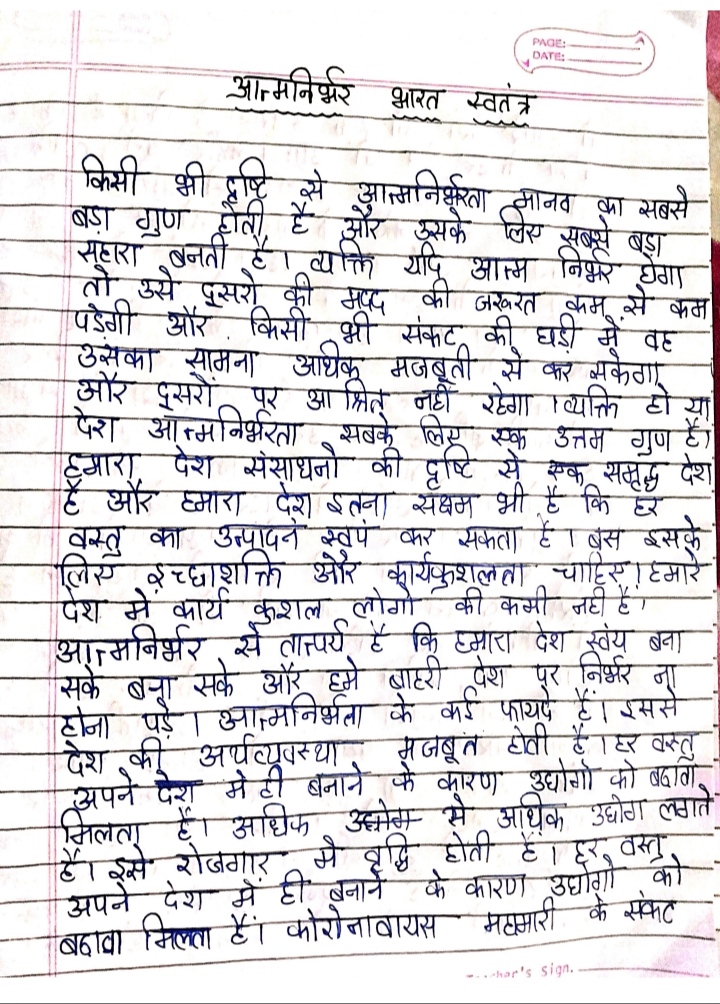 PAGE:
DATE:
आत्मनिर्भर भारत स्वतंत्र
किसी भी दृष्टि से आत्मनिर्भरता मानव का सबसे
बड़ा गुण होती है और उसके लिए सबसे बड़ा
सहारा बनती है। व्यक्ति यदि आत्म निर्भर होगा
तो उसे दुसरो की मदद की जरूरत कम से कम
पड़ेगी और किसी भी संकट की घड़ी में वह
उसका सामना अधिक मजबूती से कर सकेगा
और दुसरों पर आश्रित नहीं रहेगा। व्यक्ति हो या
देश आत्मनिर्भरता सबके लिए एक उत्तम गुण है।
हमारा देश संसाधनो की दृष्टि से एक समृद्ध देश
है और हमारा देश इतना सक्षम भी है कि हर
वस्तु का उत्पादन स्वयं कर सकता है। बस इसके
लिए इच्छाशक्ति और कार्यकुशलता चाहिए। हमारे
देश में कार्य कुशल लोगो की कमी नही है।
आत्मनिर्भर से तात्पर्य है कि हमारा देश स्वंय बना
सके बचा सके और हमे बाहरी देश पर निर्भर ना
होना पड़े। आत्मनिर्भता के कई फायदे हैं। इससे
देश की अर्थव्यवस्था मजबूत होती है। हर वस्तु
अपने देश मे ही बनाने के कारण उद्योगो को बढावा
मिलता है। अधिक उद्योग से अधिक उद्योग लगते
है। इसे रोजगार मे वृद्धि होती है। हर वस्तु
अपने देश में ही बनाने के कारण उद्योगो को
बढावा मिलता है। कोरोनावायस महामारी के संकट
Sign.